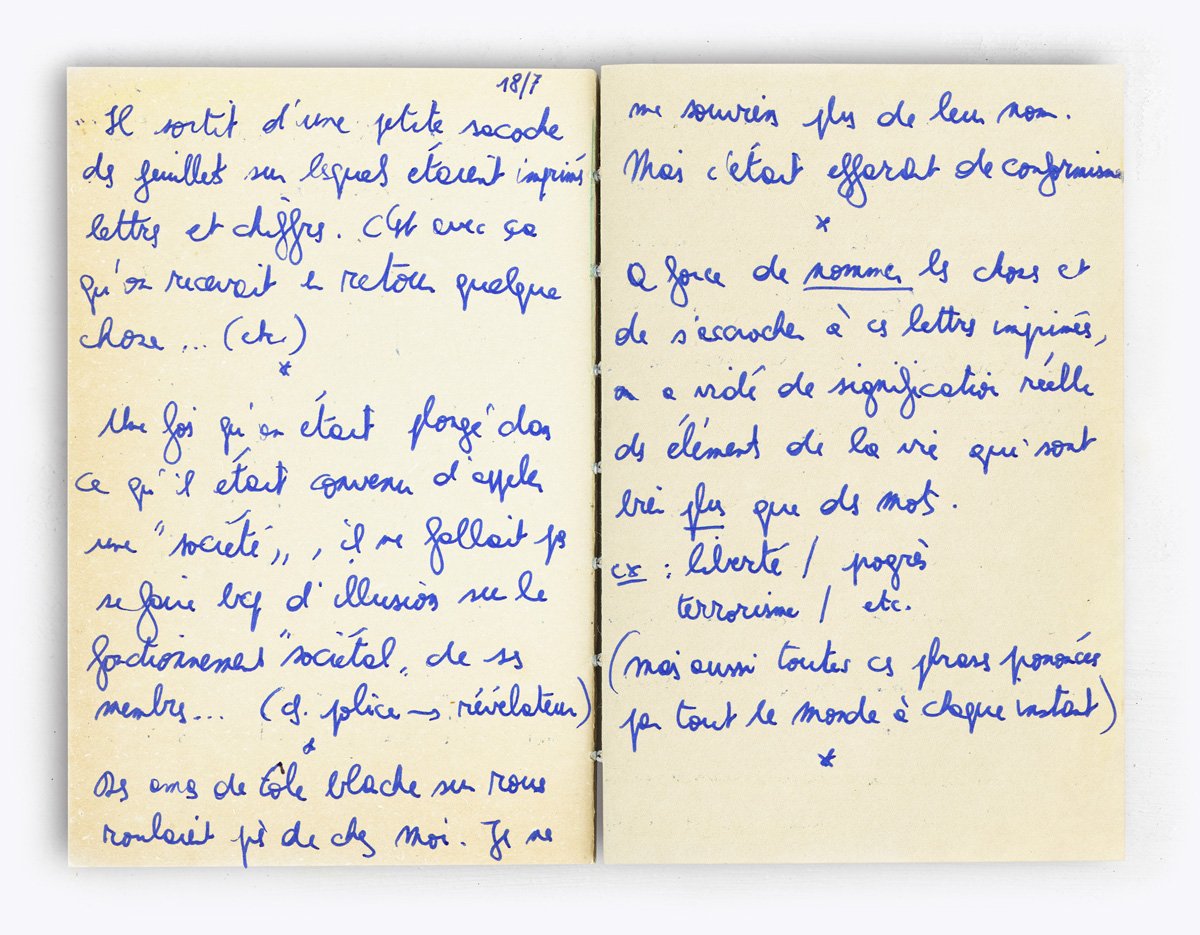 18/7
Il sortit d'une petite sacoche
des feuillets sur lesquels étaient imprimés
lettres et chiffres. C'est avec ça
qu'on recevait en retour quelque
chose... (etc.)
*
Une fois qu'on était plongé dans
ce qu'il était convenu d'appeler
une "société", il ne fallait pas
se faire bcp d'illusions sur le
fonctionnement "sociétal" de ses
membres... (cf. police → révélateur)
*
Des amas de tôle blanche sur roues
roulaient près de chez moi. Je ne
me souviens plus de leur nom.
Mais c'était effarant de conformisme
*
A force de nommer les choses et
de s'accrocher à ces lettres imprimées,
on a vidé de signification réelle
des éléments de la vie qui sont
bien plus que des mots.
ex : liberté / pogrès
terrorisme / etc.
(mais aussi toutes ces phrases prononcées
par tout le monde à chaque instant)
*